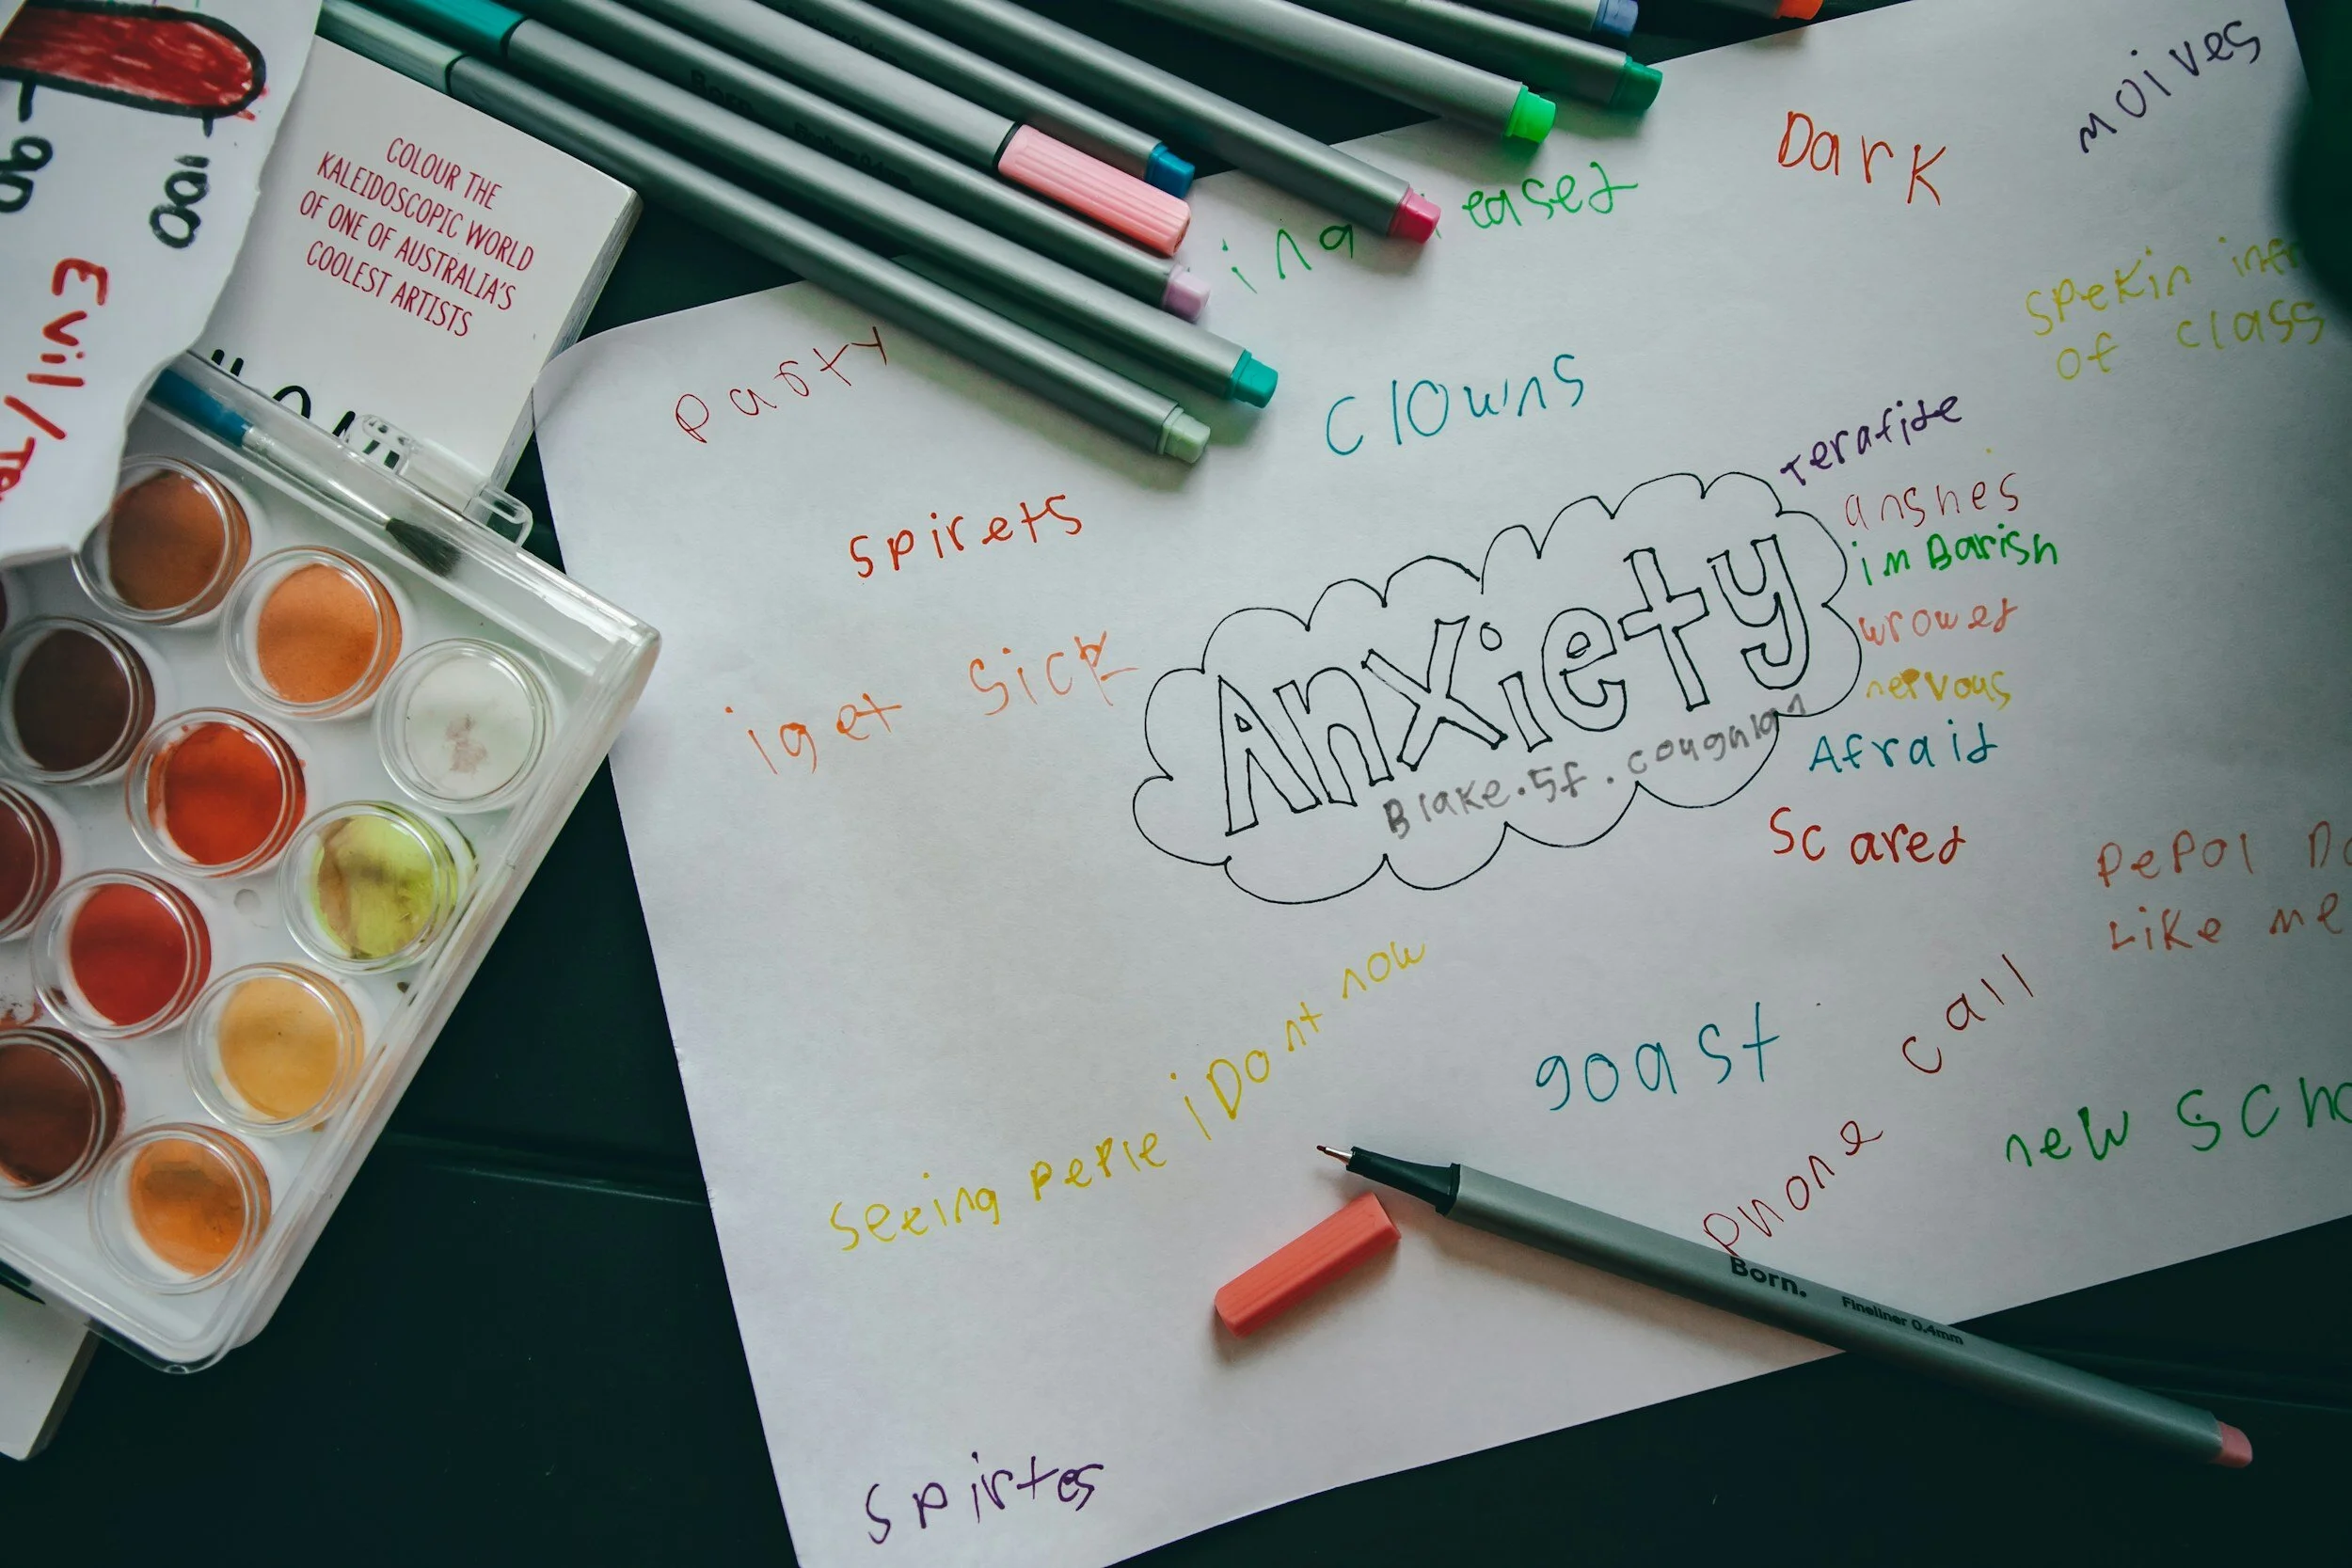 100
Evil/
COLOUR THE
KALEIDOSCOPIC WORLD
OF ONE OF AUSTRALIA'S
COOLEST ARTISTS
Born.
Dark
moives
Party
Clowns
spekin
of class
spirets
terafide
anshes
imBarish
wrowed
nervous
Afraid
Scared
iget sick
Anxiety
Blake.5f.coughlan
Pepol
Like me
seeing peple iDont now
goast
Phone call
new
Born. Fineliner 0.4mm
spirtes